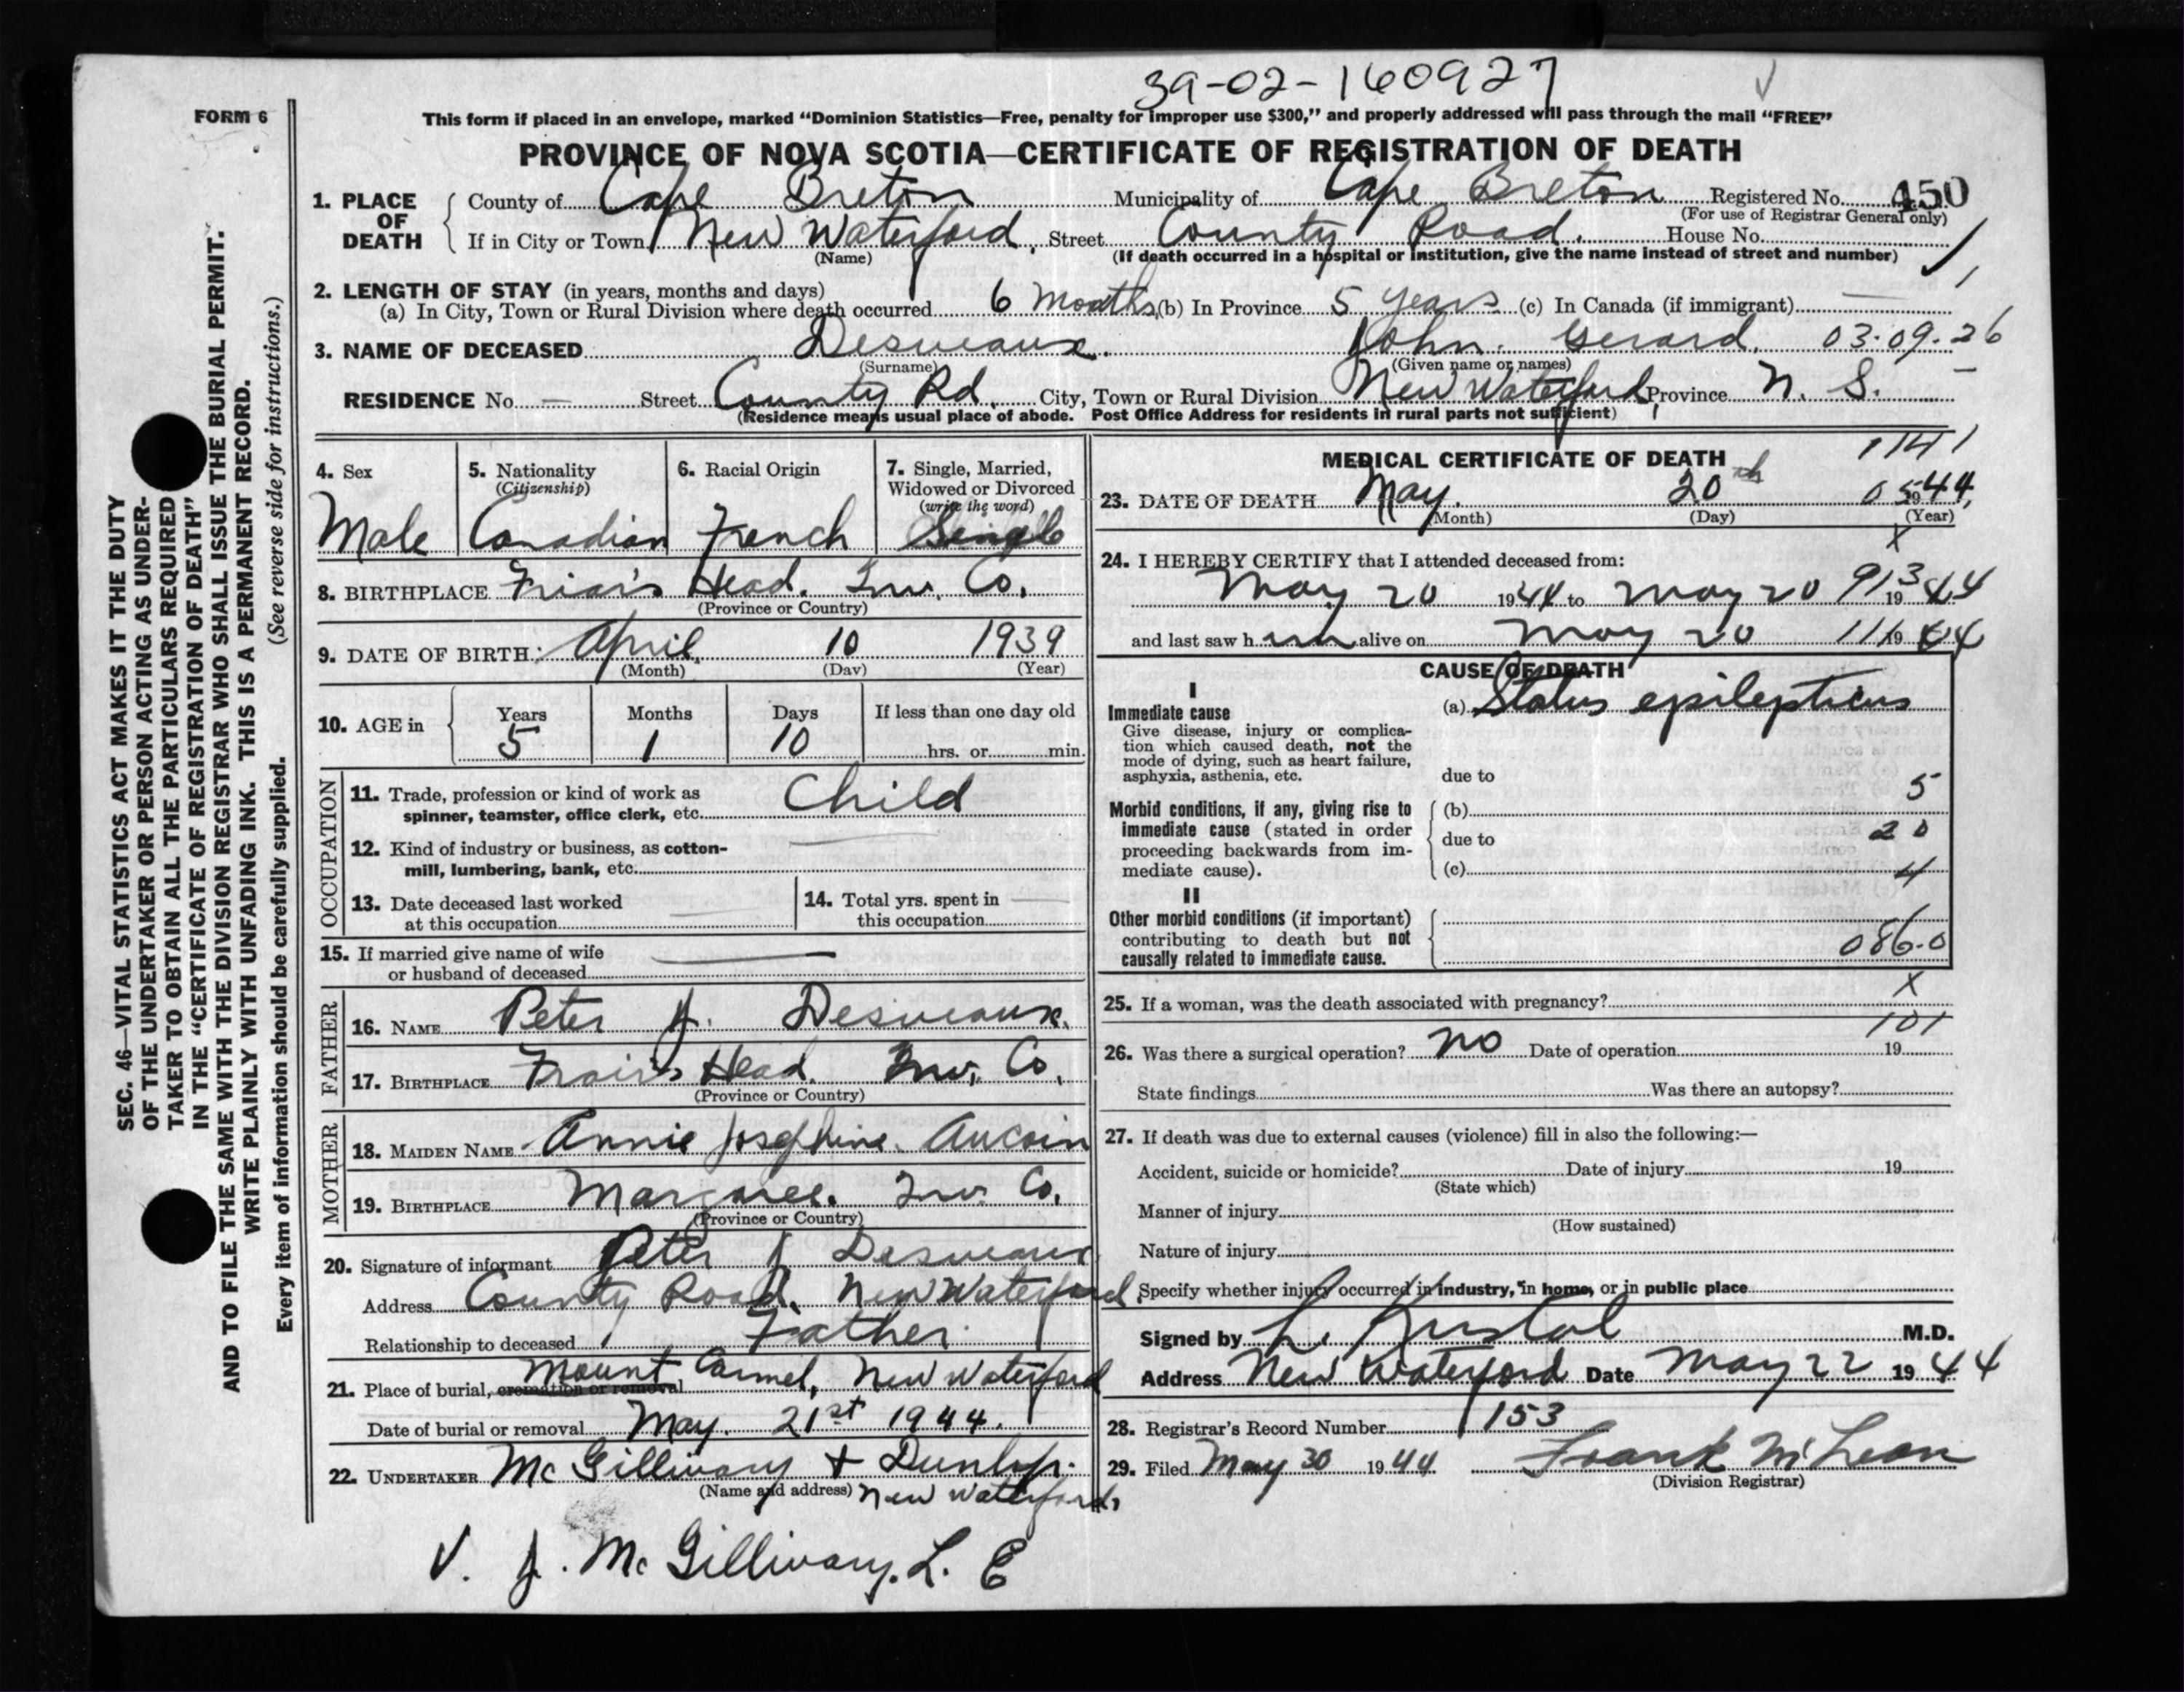 39-02-160927
FORM 6
This form if placed in an envelope, marked “Dominion Statistics—Free, penalty for improper use $300,” and properly addressed will pass through the mail “FREE”
PROVINCE OF NOVA SCOTIA—CERTIFICATE OF REGISTRATION OF DEATH
1. PLACE OF DEATH { County of Cape Breton Municipality of Cape Breton Registered No. 450
(For use of Registrar General only)
If in City or Town New Waterford, Street County Road. House No.
(Name) (If death occurred in a hospital or institution, give the name instead of street and number)
2. LENGTH OF STAY (in years, months and days)
(a) In City, Town or Rural Division where death occurred 6 Months (b) In Province 5 years (c) In Canada (if immigrant) —
3. NAME OF DECEASED Desveaux. John. Gerard. 03.09.26
(Surname) (Given name or names)
RESIDENCE No. — Street County Rd. City, Town or Rural Division New Waterford, Province N. S.
(Residence means usual place of abode. Post Office Address for residents in rural parts not sufficient)
SEC. 46—VITAL STATISTICS ACT MAKES IT THE DUTY
OF THE UNDERTAKER OR PERSON ACTING AS UNDER-
TAKER TO OBTAIN ALL THE PARTICULARS REQUIRED
IN THE “CERTIFICATE OF REGISTRATION OF DEATH”
AND TO FILE THE SAME WITH THE DIVISION REGISTRAR WHO SHALL ISSUE THE BURIAL PERMIT.
WRITE PLAINLY WITH UNFADING INK. THIS IS A PERMANENT RECORD.
Every item of information should be carefully supplied. (See reverse side for instructions.)
4. Sex 5. Nationality 6. Racial Origin 7. Single, Married,
(Citizenship) Widowed or Divorced
(write the word)
Male Canadian French Single
8. BIRTHPLACE Friar's Head. Inv. Co.
(Province or Country)
9. DATE OF BIRTH: April 10 1939
(Month) (Day) (Year)
10. AGE in { Years Months Days If less than one day old
5 1 10 hrs. or min.
OCCUPATION
11. Trade, profession or kind of work as
spinner, teamster, office clerk, etc. Child
12. Kind of industry or business, as cotton-
mill, lumbering, bank, etc.
13. Date deceased last worked
at this occupation
14. Total yrs. spent in
this occupation
15. If married give name of wife
or husband of deceased —
FATHER
16. NAME Peter J. Desveaux.
17. BIRTHPLACE Frair's Head. Inv. Co.
(Province or Country)
MOTHER
18. MAIDEN NAME Annie Josephine. Aucoin
19. BIRTHPLACE Margaree. Inv. Co.
(Province or Country)
20. Signature of informant Peter J Desveaux
Address County Road. New Waterford.
Relationship to deceased Father.
21. Place of burial, cremation or removal Mount Carmel, New Waterford
Date of burial or removal May. 21st 1944.
22. UNDERTAKER McGillivary + Dunlop.
(Name and address) New Waterford.
V. J. McGillivary. L. E
MEDICAL CERTIFICATE OF DEATH 1141
23. DATE OF DEATH May. 20th 05 1944,
(Month) (Day) (Year)
X
24. I HEREBY CERTIFY that I attended deceased from:
May 20 1944 to May 20 913 1944
and last saw him alive on May 20 111 1944
CAUSE OF DEATH
I
Immediate cause (a) Status epilepticus
Give disease, injury or complica-
tion which caused death, not the
mode of dying, such as heart failure,
asphyxia, asthenia, etc. due to
5
Morbid conditions, if any, giving rise to (b)
immediate cause (stated in order due to 20
proceeding backwards from im-
mediate cause). (c) 4
II
Other morbid conditions (if important)
contributing to death but not 086.0
causally related to immediate cause.
25. If a woman, was the death associated with pregnancy? X
101
26. Was there a surgical operation? No Date of operation 19
State findings Was there an autopsy?
27. If death was due to external causes (violence) fill in also the following:—
Accident, suicide or homicide? Date of injury 19
(State which)
Manner of injury
(How sustained)
Nature of injury
Specify whether injury occurred in industry, in home, or in public place
Signed by L. M.D.
Address New Waterford Date May 22 1944
28. Registrar's Record Number 153
29. Filed May 30 1944 Frank McLean
(Division Registrar)